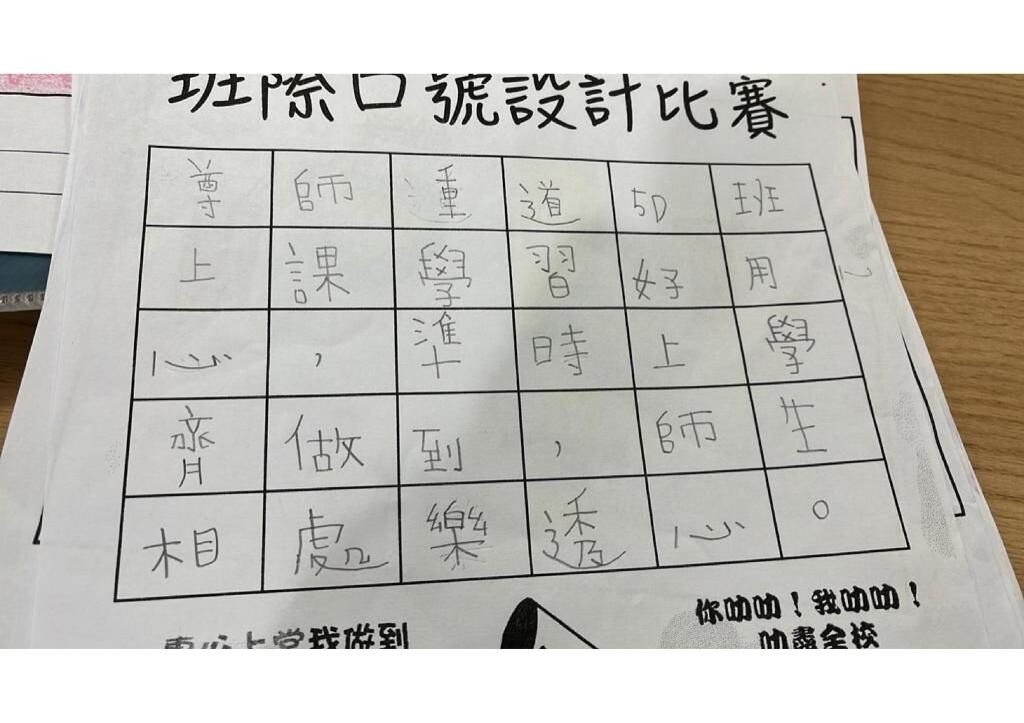 班際口號設計比賽
尊師重道5D班
上課學習好用
心，準時上學
齊做到，師生
相處樂透心。
專心上堂我做到
你叻叻！我叻叻！
叻盡全校